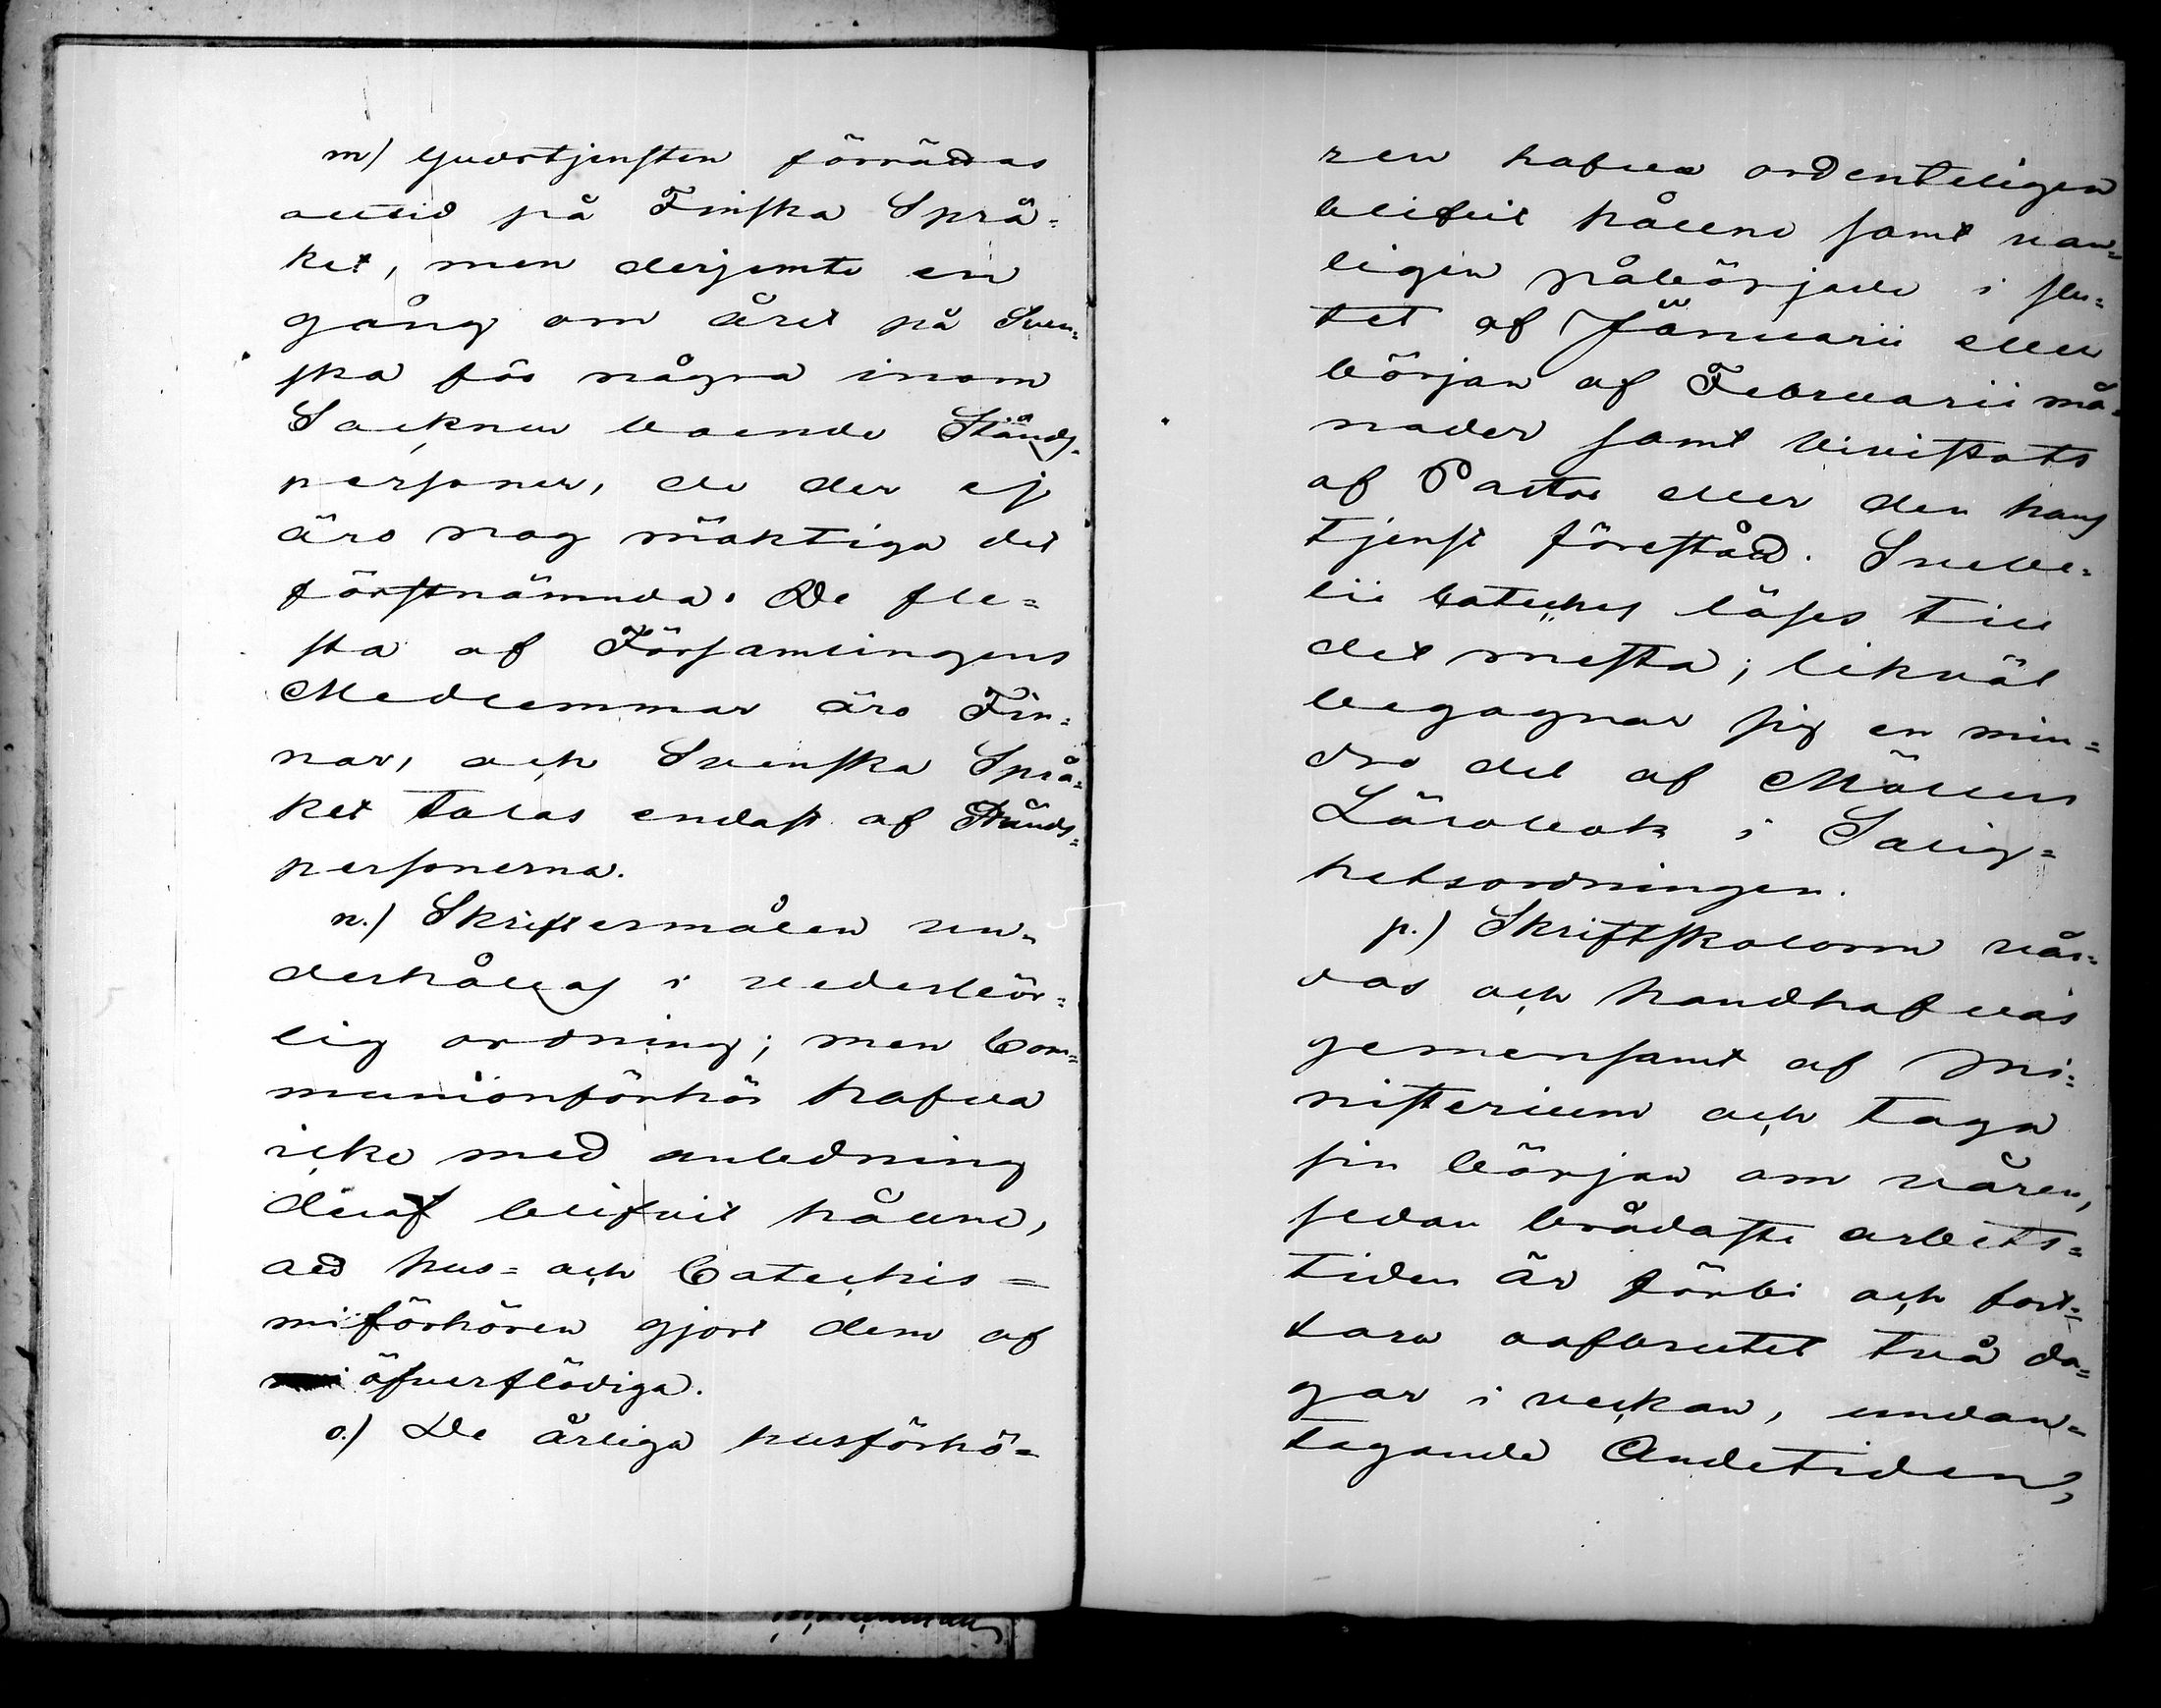 m) Gudstjensten förrättas
alltid på Finska Språ=
ket, men derjemte en
gång om året på Sven=
ska för några inom
Socknen boende Stånds=
personer, de der ej
äro nog mäktiga det
förstnämnda. De fle=
sta af Församlingens
Medlemmar äro Fin=
nar, och Svenska Språ=
ket talas endast af Stånds=
personerna.
n.) Skriftermålen un=
derhållas i vederbör=
lig ordning; men Com=
munionförhör hafva
icke med anledning
deraf blifvit hållne,
att hus= och Catechis=
miförhören gjort dem af
öfverflödiga.
o.) De årliga husförhö=
ren hafva ordenteligen
blifvit hållne samt van=
ligen påbörjade i slu=
tet af Januarii eller
början af Februarii må=
nader samt bivistats
af Pastor eller den hans
tjenst förestådt. Svebe=
lii Cateches läses till
det mesta; likväl
begagnar sig en min=
dre del af Möllers
Lärobok i Salig=
hetsordningen.
p.) Skriftskolorna vår=
das och handhafvas
gemensamt af Mi=
nisterium och taga
sin början om våren,
sedan brådaste arbets=
tiden är förbi och fort=
fara oafbrutet två da=
gar i veckan, undan=
tagande Andetiden,